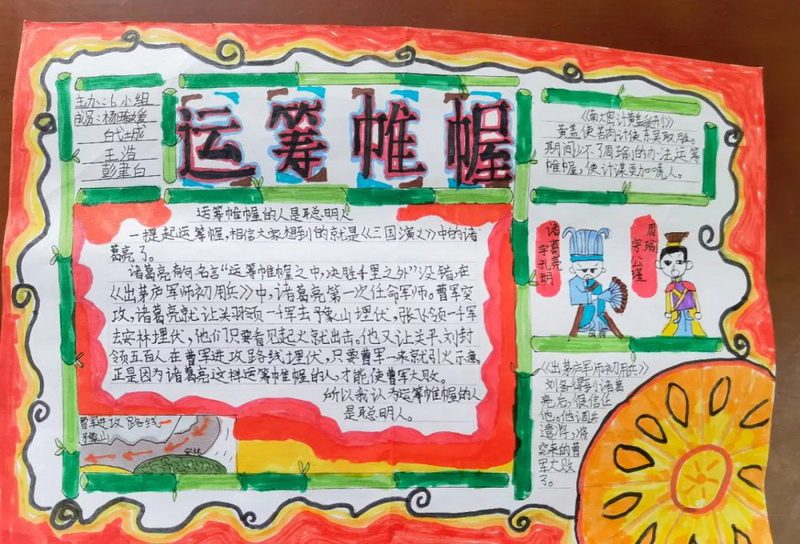 主办:6小组
成员:杨
王浩
运筹帷幄
运筹帷幄的人是聪明人
一提起运筹帷幄,相信大家想到的就是《三国演义》中的诸
葛亮了。
诸葛亮有句名言“运筹帷幄之中,决胜千里之外”没错,在
《出茅庐军师初用兵》中,诸葛亮第一次任命军师。曹军突
攻,诸葛亮就让关羽领一千军去豫山埋伏,张飞领一千军
去安林埋伏,他们只要看见起火就出击。他又让关平、刘封
领五百人在曹军进攻路线埋伏,只要曹军一来就引火示意,
正是因为诸葛亮这样运筹帷幄的人,才能使曹军大败。
所以我认为运筹帷幄的人
是聪明人。
曹军进攻路线
豫山
安林
计黄盖受刑》
黄盖使苦肉计使东吴取胜。
期间少不了周瑜的办法,运筹
帷幄,使计谋更加唬人。
诸葛亮
字孔明
周瑜
字公瑾
《出茅庐军师初用兵》
刘备得到诸葛
亮后,很信任
他。他调兵
遣将,将
突来的曹
军大败
了。